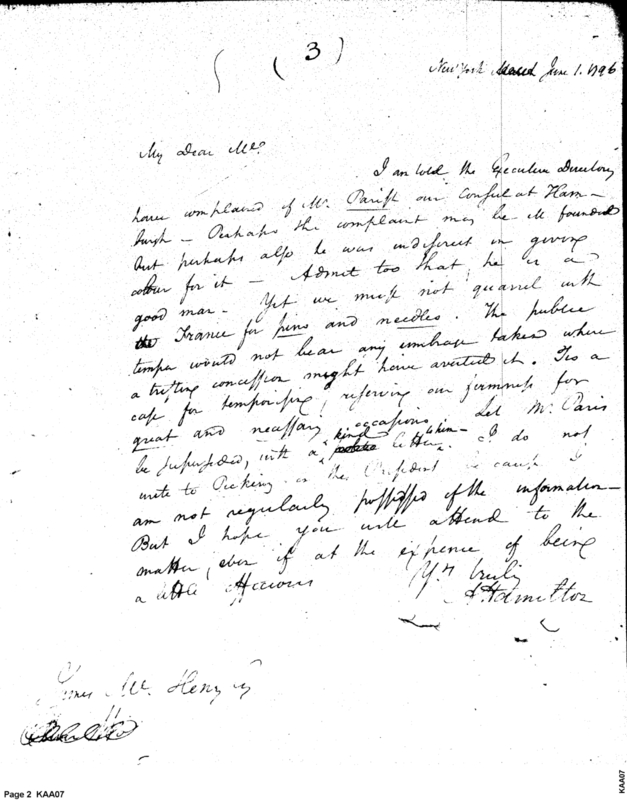 ( ( 3 )
New York March June 1. 1796
My Dear Mc.
I am told the Executive Directory
have complained of Mr. Parish our Consul at Ham-
burgh — Perhaps the complaint may be ill founded
but perhaps also he was indiscreet in giving
colour for it — Admit too that he is a
good man — Yet we must not quarrel with
the France for pins and needles. The public
temper would not bear any umbrage taken where
a trifling concession might have averted it. Tis a
case for temporising, reserving our firmness for
great and necessary occasions. Let Mr. Paris
be superseded, with a kind letter to him — I do not
write to Picking or the President because I
am not regularly possessed of the information —
But I hope you will attend to the
matter, even if at the expence of being
a little
Yrs truly
A Hamilton
James Mc. Henry
Page 2 KAA07
KAA07